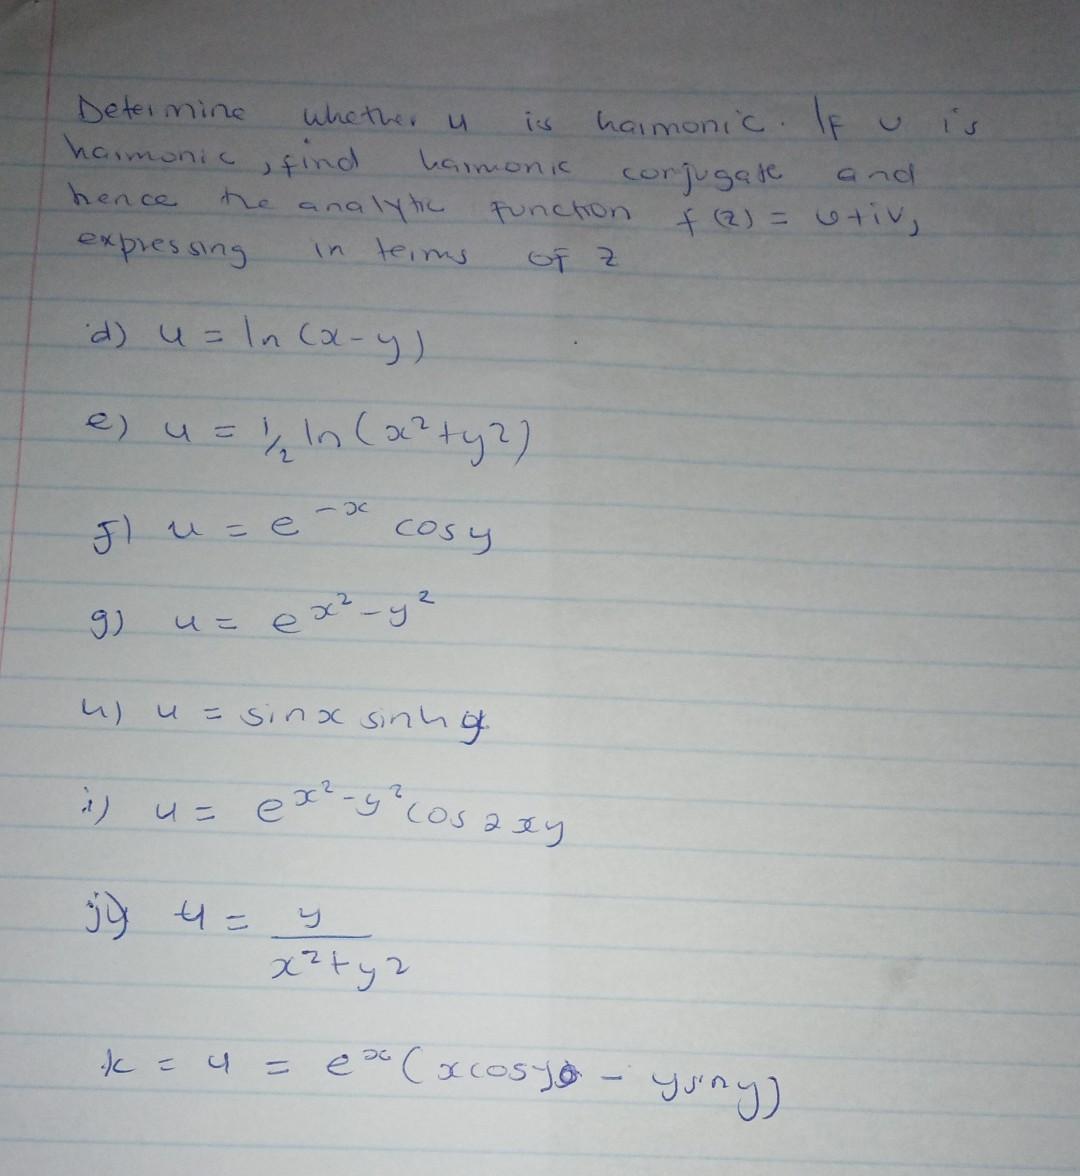 Determine whether u is harmonic. If u is
harmonic, find harmonic conjugate and
hence the analytic function f(z) = u+iv,
expressing in terms of z
d) u = ln (x-y)
e) u = 1/2 ln (x²+y²)
f) u = e^-x cosy
g) u = e^x²-y²
h) u = sinx sinhy
i) u = e^x²-y² cos 2xy
j) u = y/x²+y²
k = u = e^x (xcosy - ysiny)